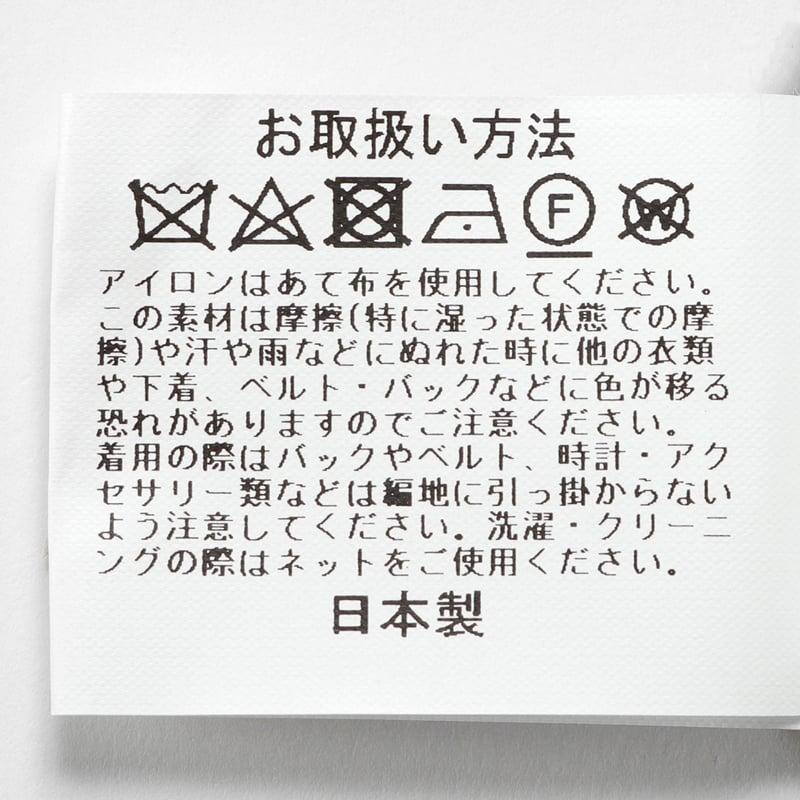 お取扱い方法
F
W
アイロンはあて布を使用してください。
この素材は摩擦(特に湿った状態での摩
擦)や汗や雨などにぬれた時に他の衣類
や下着、ベルト・バックなどに色が移る
恐れがありますのでご注意ください。
着用の際はバックやベルト、時計・アク
セサリー類などは編地に引っ掛からない
よう注意してください。洗濯・クリーニ
ングの際はネットをご使用ください。
日本製